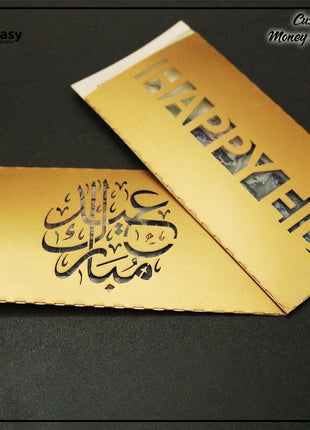 asy
Cus
Money
HAPPY
عيد
مبارك